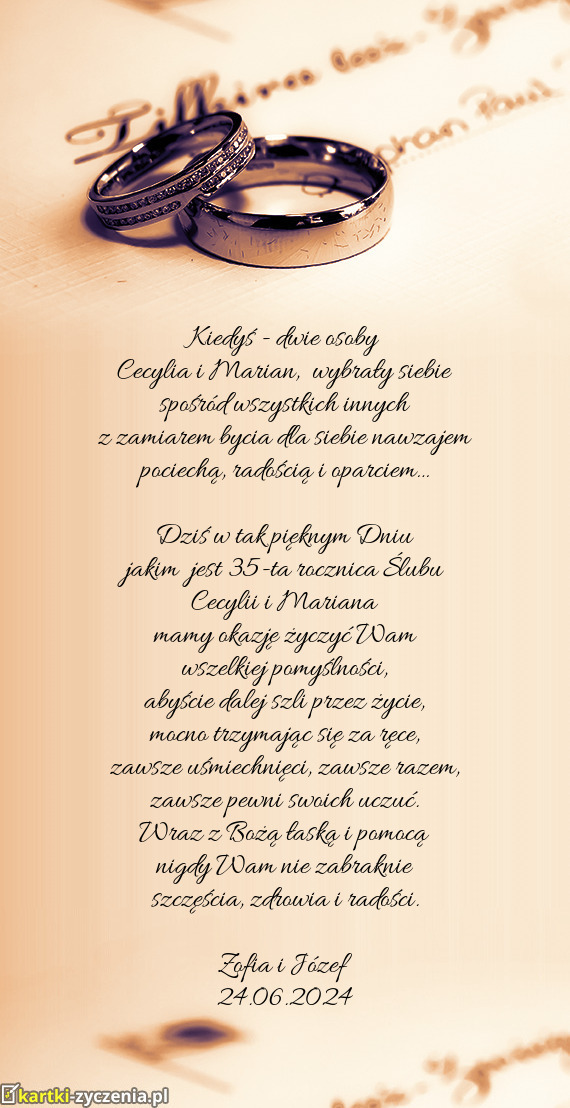 Kiedyś - dwie osoby
Cecylia i Marian, wybrały siebie
spośród wszystkich innych
z zamiarem bycia dla siebie nawzajem
pociechą, radością i oparciem...
Dziś w tak pięknym Dniu
jakim jest 35-ta rocznica Ślubu
Cecylii i Mariana
mamy okazję życzyć Wam
wszelkiej pomyślności,
abyście dalej szli przez życie,
mocno trzymając się za ręce,
zawsze uśmiechnięci, zawsze razem,
zawsze pewni swoich uczuć.
Wraz z Bożą łaską i pomocą
nigdy Wam nie zabraknie
szczęścia, zdrowia i radości.
Zofia i Józef
24.06.2024
kartki-zyczenia.pl